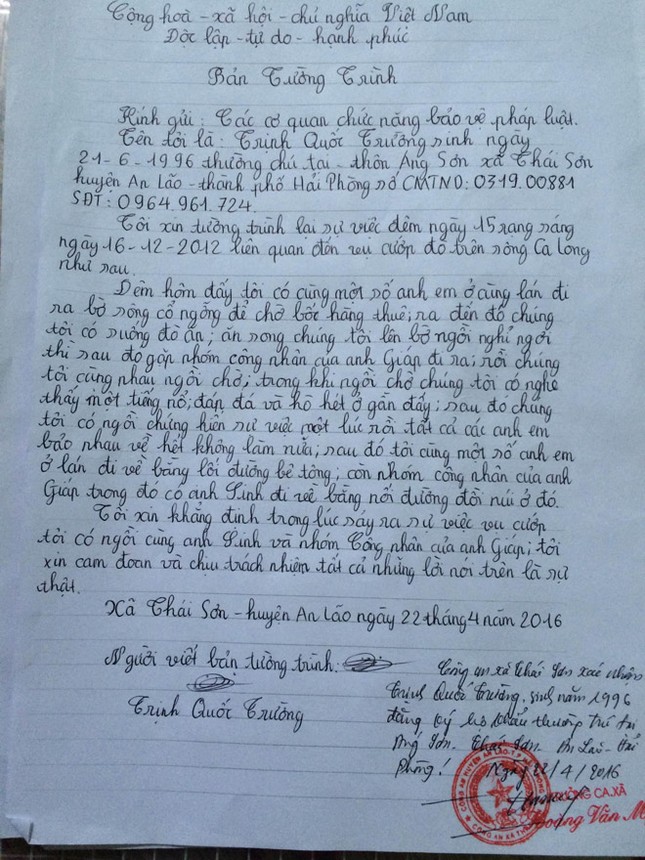 Cộng hoà - xã hội - chủ nghĩa Việt Nam
Độc lập - tự do - hạnh phúc
Bản Tường Trình
Kính gửi: Các cơ quan chức năng bảo vệ pháp luật.
Tên tôi là: Trịnh Quốc Trường sinh ngày
21-6-1996 thường chú tại - thôn Áng Sơn xã Thái Sơn
huyện An Lão - thành phố Hải Phòng số CMTND: 0319.00881
SĐT: 0964.961.724.
Tôi xin tường trình lại sự việc đêm ngày 15 rạng sáng
ngày 16-12-2012 liên quan đến vụ cướp đò trên sông Ca Long
như sau.
Đêm hôm đấy tôi có cùng một số anh em ở cùng lán đi
ra bờ sông cổ ngỗng để chờ bốc hàng thuê; ra đến đó chúng
tôi có suống đò ăn; ăn song chúng tôi lên bờ ngồi nghỉ ngơi
thì sau đó gặp nhóm công nhân của anh Giáp đi ra; rồi chúng
tôi cùng nhau ngồi chờ; trong khi ngồi chờ chúng tôi có nghe
thấy một tiếng nổ; đán đá và hò hét ở gần đấy; sau đó chúng
tôi có ngồi chứng kiến sự việc một lúc rồi tất cả các anh em
bảo nhau về hết không làm nữa; sau đó tôi cùng một số anh em
ở lán đi về bằng lối đường bê tông; còn nhóm công nhân của anh
Giáp trong đó có anh Sinh đi về bằng nối đường đồi núi ở đó.
Tôi xin khẳng định trong lúc sảy ra sự việc vụ cướp
tôi có ngồi cùng anh Sinh và nhóm Công nhân của anh Giáp; tôi
xin cam đoan và chịu trách nhiệm tất cả những lời nói trên là sự
thật.
Xã Thái Sơn - huyện An Lão ngày 22 tháng 4 năm 2016
Người viết bản tường trình:
Trịnh Quốc Trường
Công an xã Thái Sơn xác nhận
Trịnh Quốc Trường, sinh năm 1996
đăng ký hộ khẩu thường trú tại
Áng Sơn - Thái Sơn - An Lão - Hải
Phòng!
Ngày 22/4/2016
TRƯỞNG CA.XÃ
Hoàng Văn